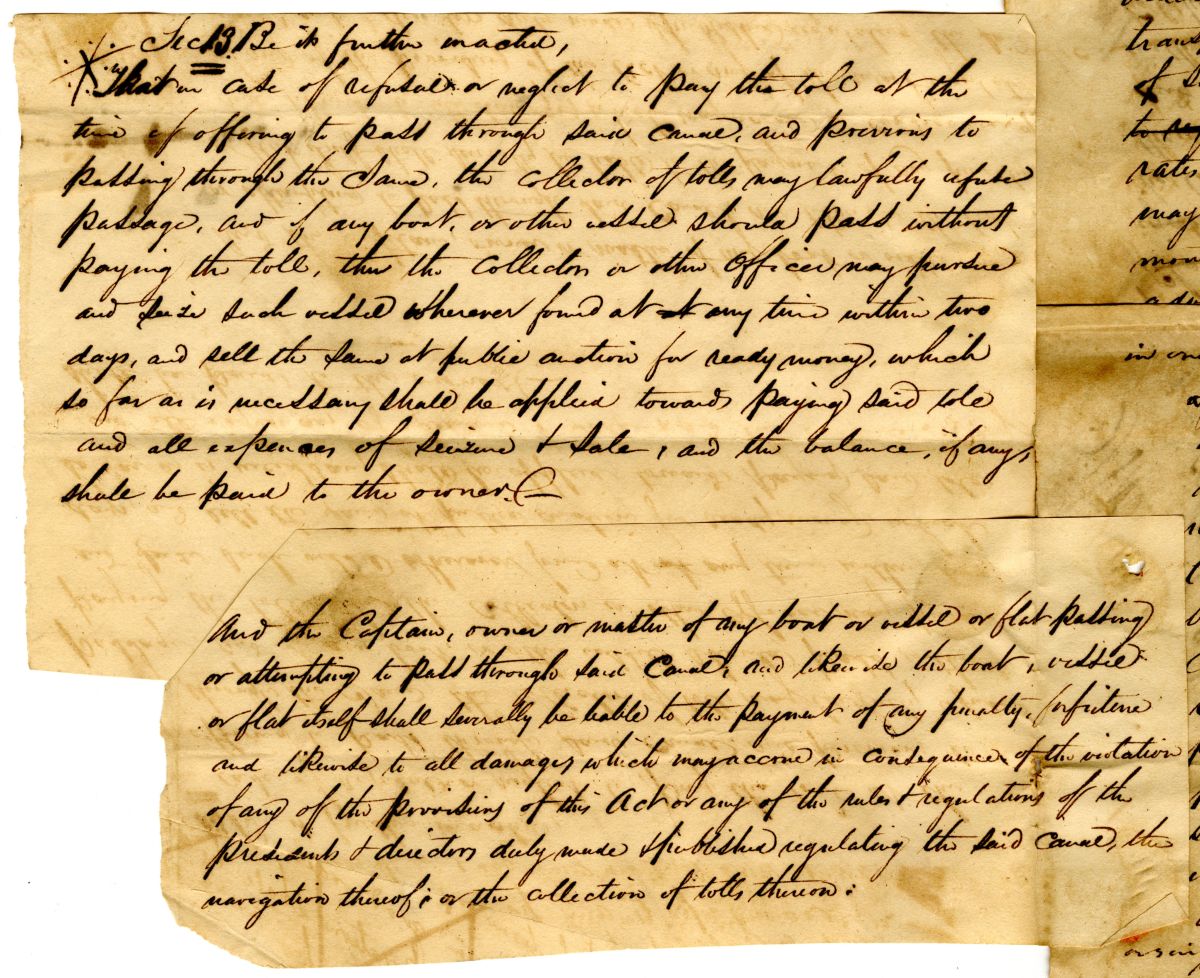 Sec 13. Be it further enacted,
That in case of refusal or neglect to pay the toll at the
time of offering to pass through said canal, and previous to
passing through the same, the collector of tolls may lawfully refuse
passage, and if any boat, or other vessel should pass without
paying the toll, then the collector or other officer may pursue
and seize such vessel wherever found at at any time within two
days, and sell the same at public auction for ready money, which
so far as is necessary shall be applied towards paying said tole
and all expences of seizure & sale, and the balance, if any,
shall be paid to the owner.
And the Captain, owner or master of any boat or vessel or flat passing
or attempting to pass through said Canal, and likewise the boat, vessel
or flat itself shall severally be liable to the payment of any penalty, forfeiture
and likewise to all damages which may accrue in consequence of the violation
of any of the provisions of this Act or any of the rules & regulations of the
presidents & directors duly made & published regulating the said canal, the
navigation thereof, or the collection of tolls thereon:
trans
of
rates
may
mon
in